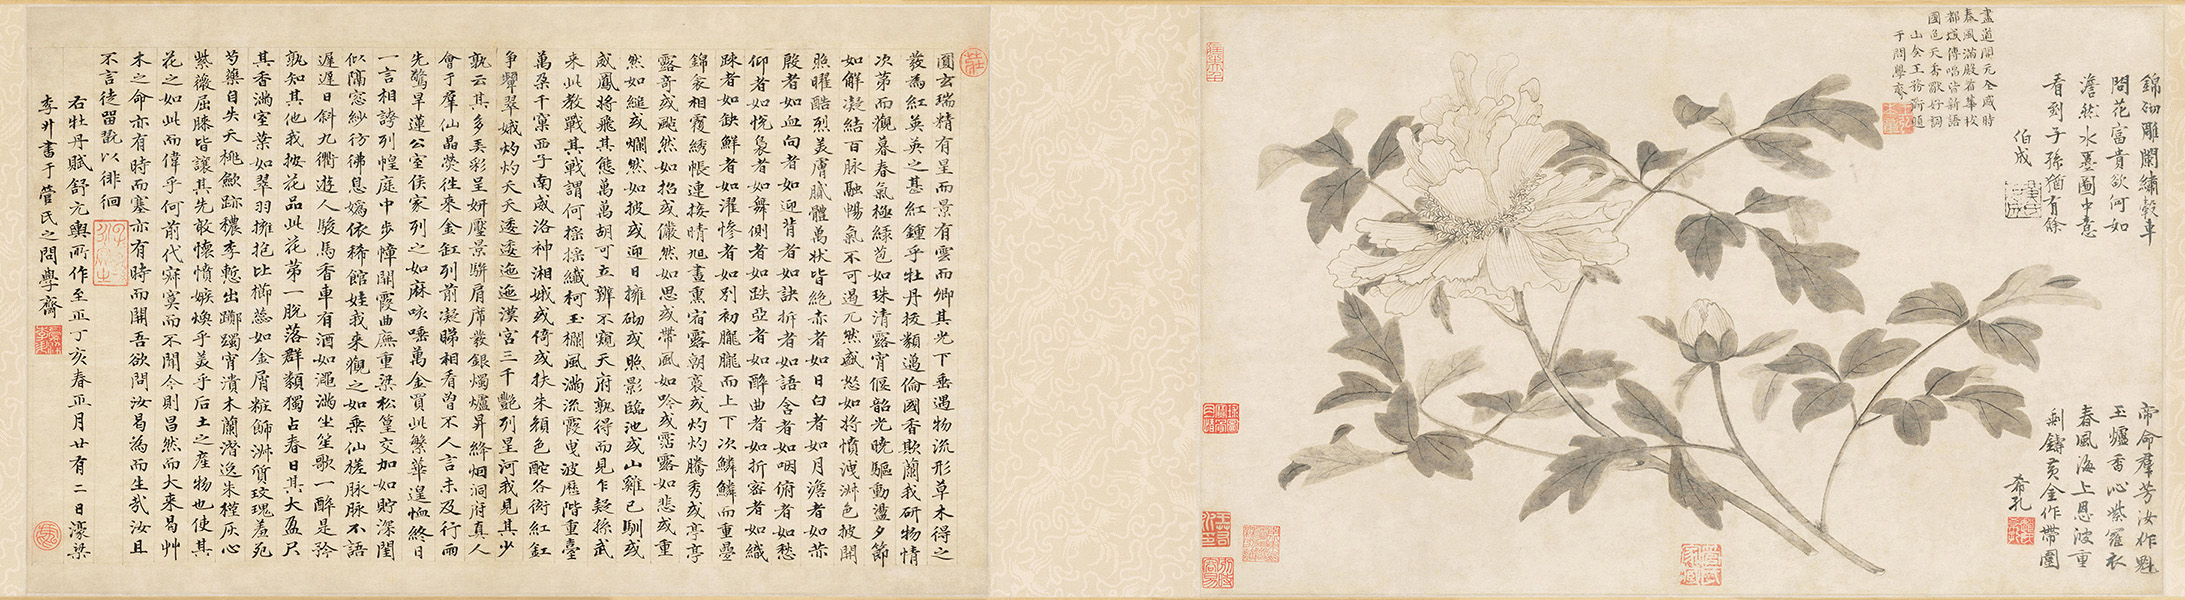 錦砌雕闌繡轂車
問花富貴欲何如
澹然水墨圖中意
看到子孫猶有餘
伯成
帝命羣芳汝作魁
玉爐香沁紫羅衣
春風海上恩波重
剩鑄黃金作帶圍
希孔
畫道開元全盛時
春風滿殿
都城傳唱皆新語
國色天香
于問學齋
圓玄瑞精有星而景有雲而卿其光下垂遇物流形草木得之
發為紅英英之甚紅鍾乎牡丹拔類邁倫國香欺蘭我研物情
次第而觀暮春氣極綠苞如珠清露宵偃韶光曉驅動盪夕節
如解凝結百脉融暢氣不可遏兀然盛怒如將憤洩淋色披開
照曜酷烈美膚膩體萬狀皆絕赤者如日白者如月澹者如赭
殷者如血向者如迎背者如訣拆者如語含者如咽俯者如愁
仰者如悅裊者如舞側者如跌亞者如醉曲者如折密者如織
踈者如缺鮮者如濯慘者如別初朧朧而上下次鱗鱗而重疊
錦衾相覆繡帳連接晴旭晝熏宿露朝裛或灼灼騰秀或亭亭
露奇或颭然如招或儼然如思或帶風如吟或霑露如悲或重
然如縋或爛然如披或迎日擁砌或照影臨池或山雞已馴或
威鳳將飛其態萬萬胡可立辨不窺天府孰得而見乍疑孫武
來此教戰其戰謂何搖搖纖柯玉欄風滿流霞曳波歷階重臺
萬朵千窠西子南威洛神湘娥或倚或扶朱顏色酡各衒紅釭
爭顰翠娥灼灼夭夭逶逶迤迤漢宮三千艷列星河我見其少
孰云其多美彩呈妍壓景駢肩席發銀燭爐昇絳烟洞府真人
會于羣仙晶熒往來金釭列前凝睇相看曾不人言未及行雨
先驚旱蓮公室侯家列之如麻咳唾萬金買此繁華遑恤終日
一言相誇列幄庭中步幛開霞曲廡重梁松篁交加如貯深閨
似隔窓紗彷彿息媯依稀館娃我來觀之如乘仙槎脉脉不語
遲遲日斜九衢遊人駿馬香車有酒如澠滿坐笙歌一醉是矜
孰知其他我按花品此花第一脫落群類獨占春日其大盈尺
其香滿室葉如翠羽擁抱比櫛蕊如金屑粧飾淋質玫瑰羞死
芍藥自失夭桃歛跡穠李慙出躑躅宵潰木蘭潛逸朱槿灰心
紫薇屈膝皆讓其先敢懷憤嫉煥乎美乎后土之產物也使其
花之如此而偉乎何前代寂寞而不聞今則昌然而大來曷艸
木之命亦有時而塞亦有時而開吾欲問汝曷為而生㢤汝且
不言徒留翫以徘徊
右牡丹賦舒元輿所作至正丁亥春正月廿有二日濠梁
李升書于管氏之問學齋